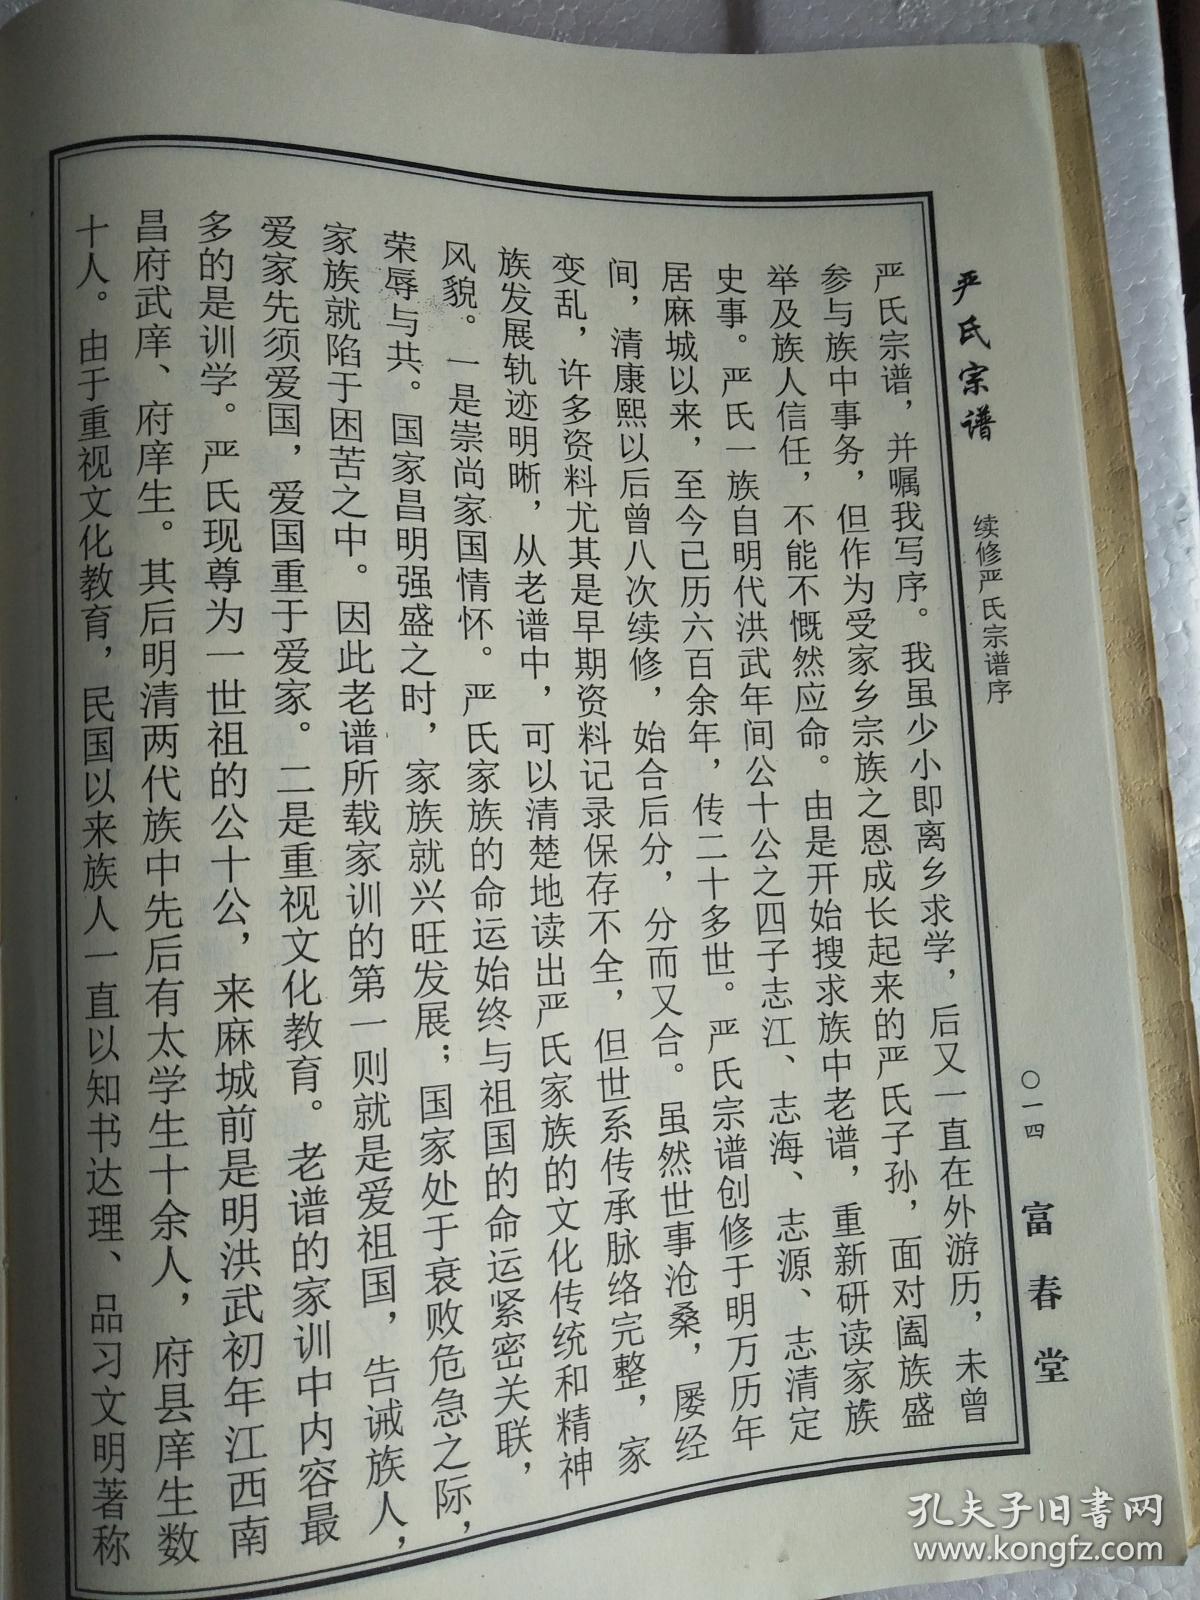 严氏宗谱
续修严氏宗谱序
〇一四
富春堂
严氏宗谱，并嘱我写序。我虽少小即离乡求学，后又一直在外游历，未曾
参与族中事务，但作为受家乡宗族之恩成长起来的严氏子孙，面对阖族盛
举及族人信任，不能不慨然应命。由是开始搜求族中老谱，重新研读家族
史事。严氏一族自明代洪武年间公十公之四子志江、志海、志源、志清定
居麻城以来，至今已历六百余年，传二十多世。严氏宗谱创修于明万历年
间，清康熙以后曾八次续修，始合后分，分而又合。虽然世事沧桑，屡经
变乱，许多资料尤其是早期资料记录保存不全，但世系传承脉络完整，家
族发展轨迹明晰，从老谱中，可以清楚地读出严氏家族的文化传统和精神
风貌。一是崇尚家国情怀。严氏家族的命运始终与祖国的命运紧密关联，
荣辱与共。国家昌明强盛之时，家族就兴旺发展；国家处于衰败危急之际，
家族就陷于困苦之中。因此老谱所载家训的第一则就是爱祖国，告诫族人，
爱家先须爱国，爱国重于爱家。二是重视文化教育。老谱的家训中内容最
多的是训学。严氏现尊为一世祖的公十公，来麻城前是明洪武初年江西南
昌府武庠、府庠生。其后明清两代族中先后有太学生十余人，府县庠生数
十人。由于重视文化教育，民国以来族人一直以知书达理、品习文明著称
孔夫子旧书网
www.kongfz.com